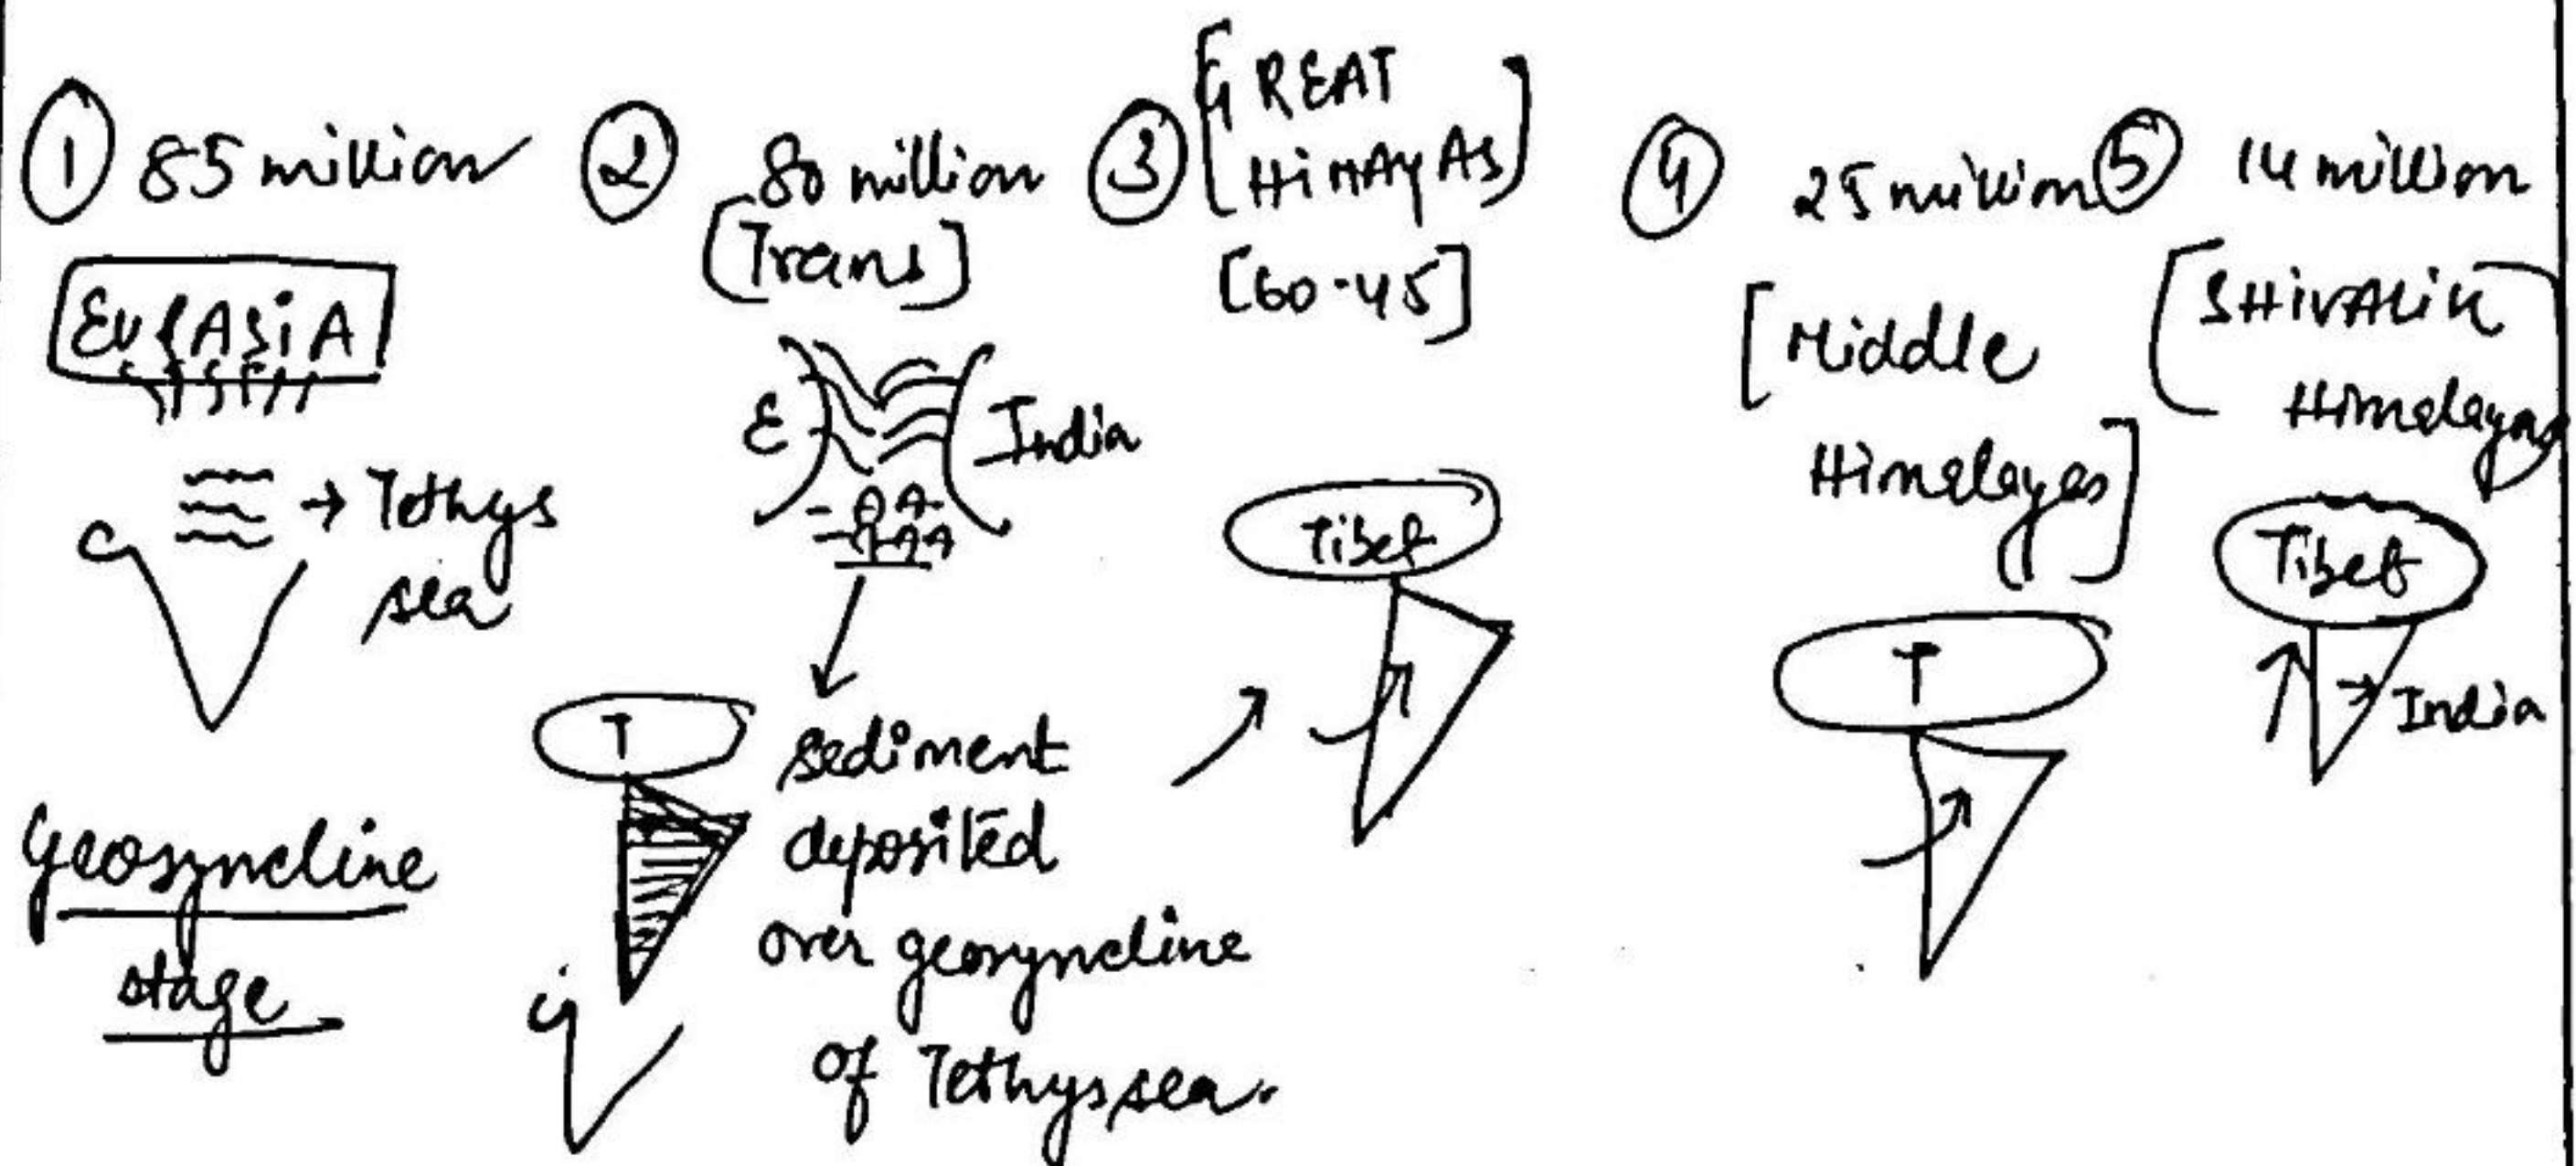 ① 85 million
EURASIA
→ Tethys
sea
G
Geosyncline
stage
② 80 million
[Trans]
E
India
sediment
deposited
over geosyncline
of Tethys sea.
T
G
③ [GREAT
HiMAyAS]
[60-45]
Tibet
④ 25 million
[Middle
Himelayes]
T
⑤ 14 million
[SHIVALIK
Himelayas
Tibet
→ India